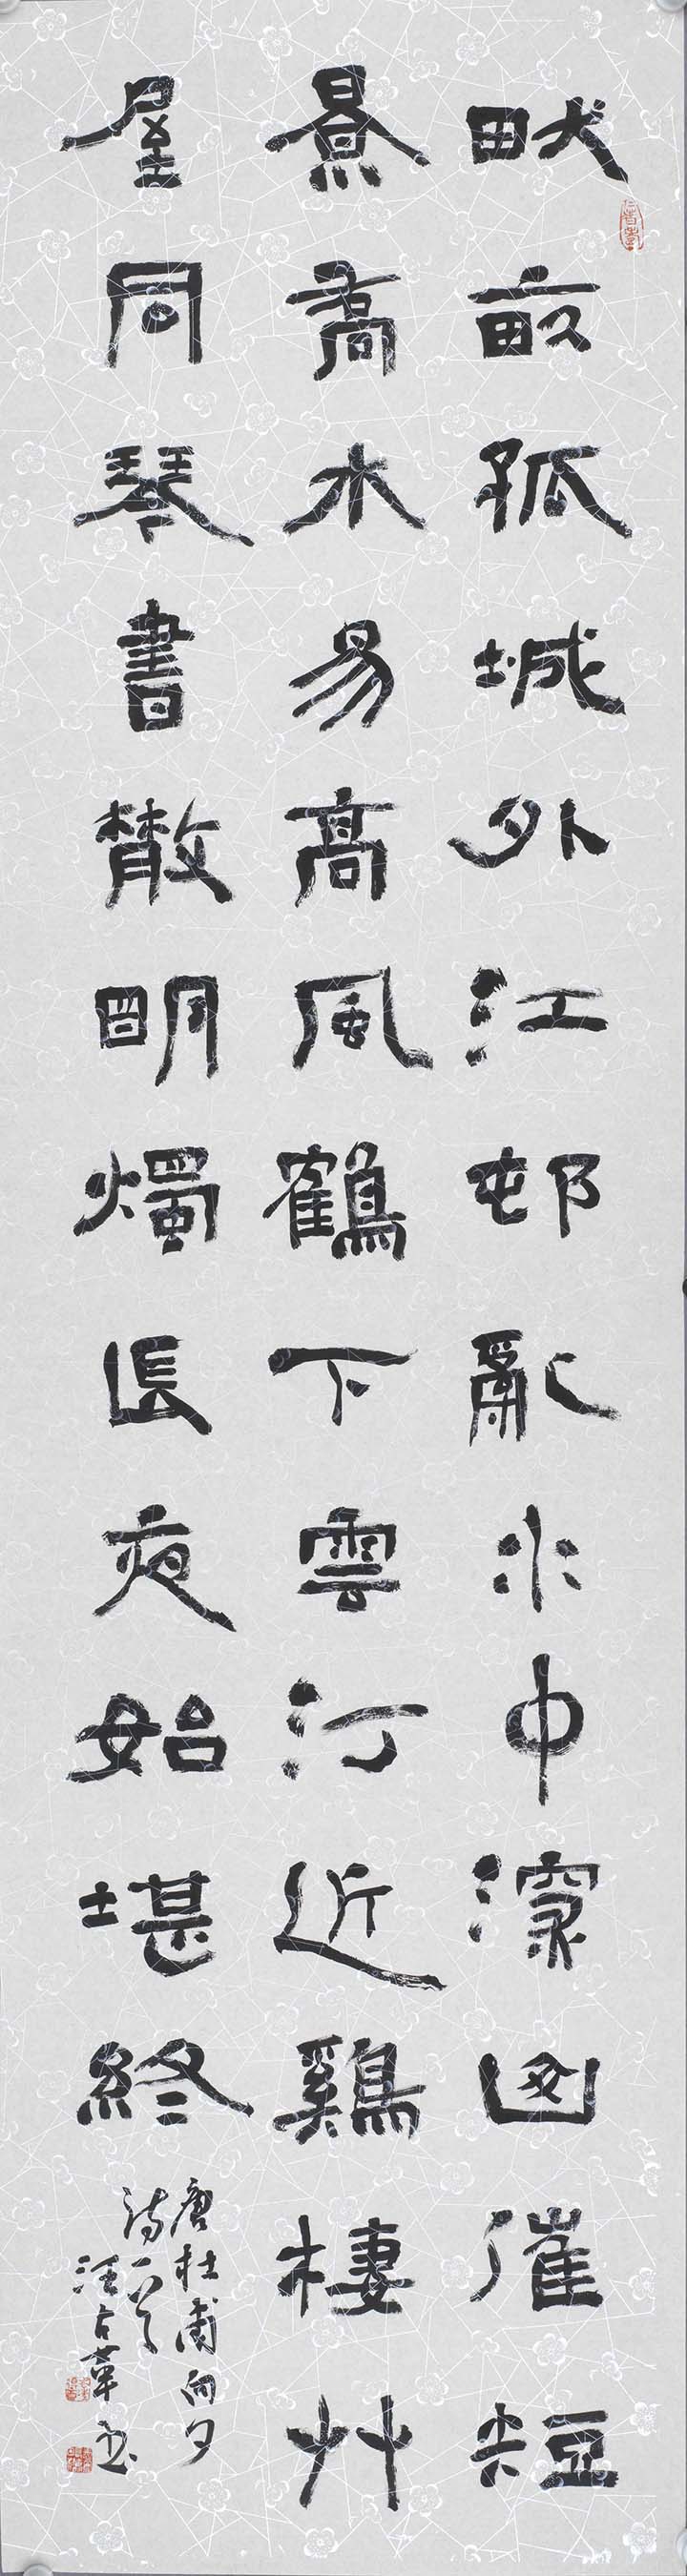 畎畝孤城外江邨亂水中深山催短
景喬木易高風鶴下雲汀近鷄棲艸
屋同琴書散明燭長夜始堪終
唐杜甫向夕
詩一首
汪占革书